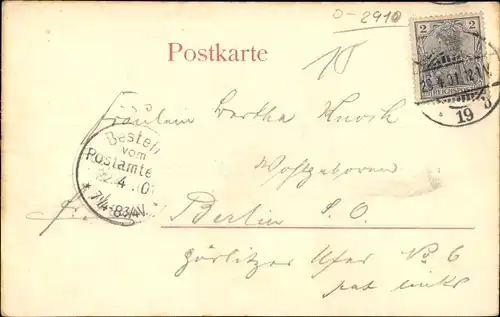 D-2910
Postkarte
2
REICHSPOST
Fräulein Bertha
Bestellt
vom
Postamte
22.4.0
7¼-8¾V.
Wohlgeboren
Berlin S. O.
Görlitzer Ufer No 6
part. links
19